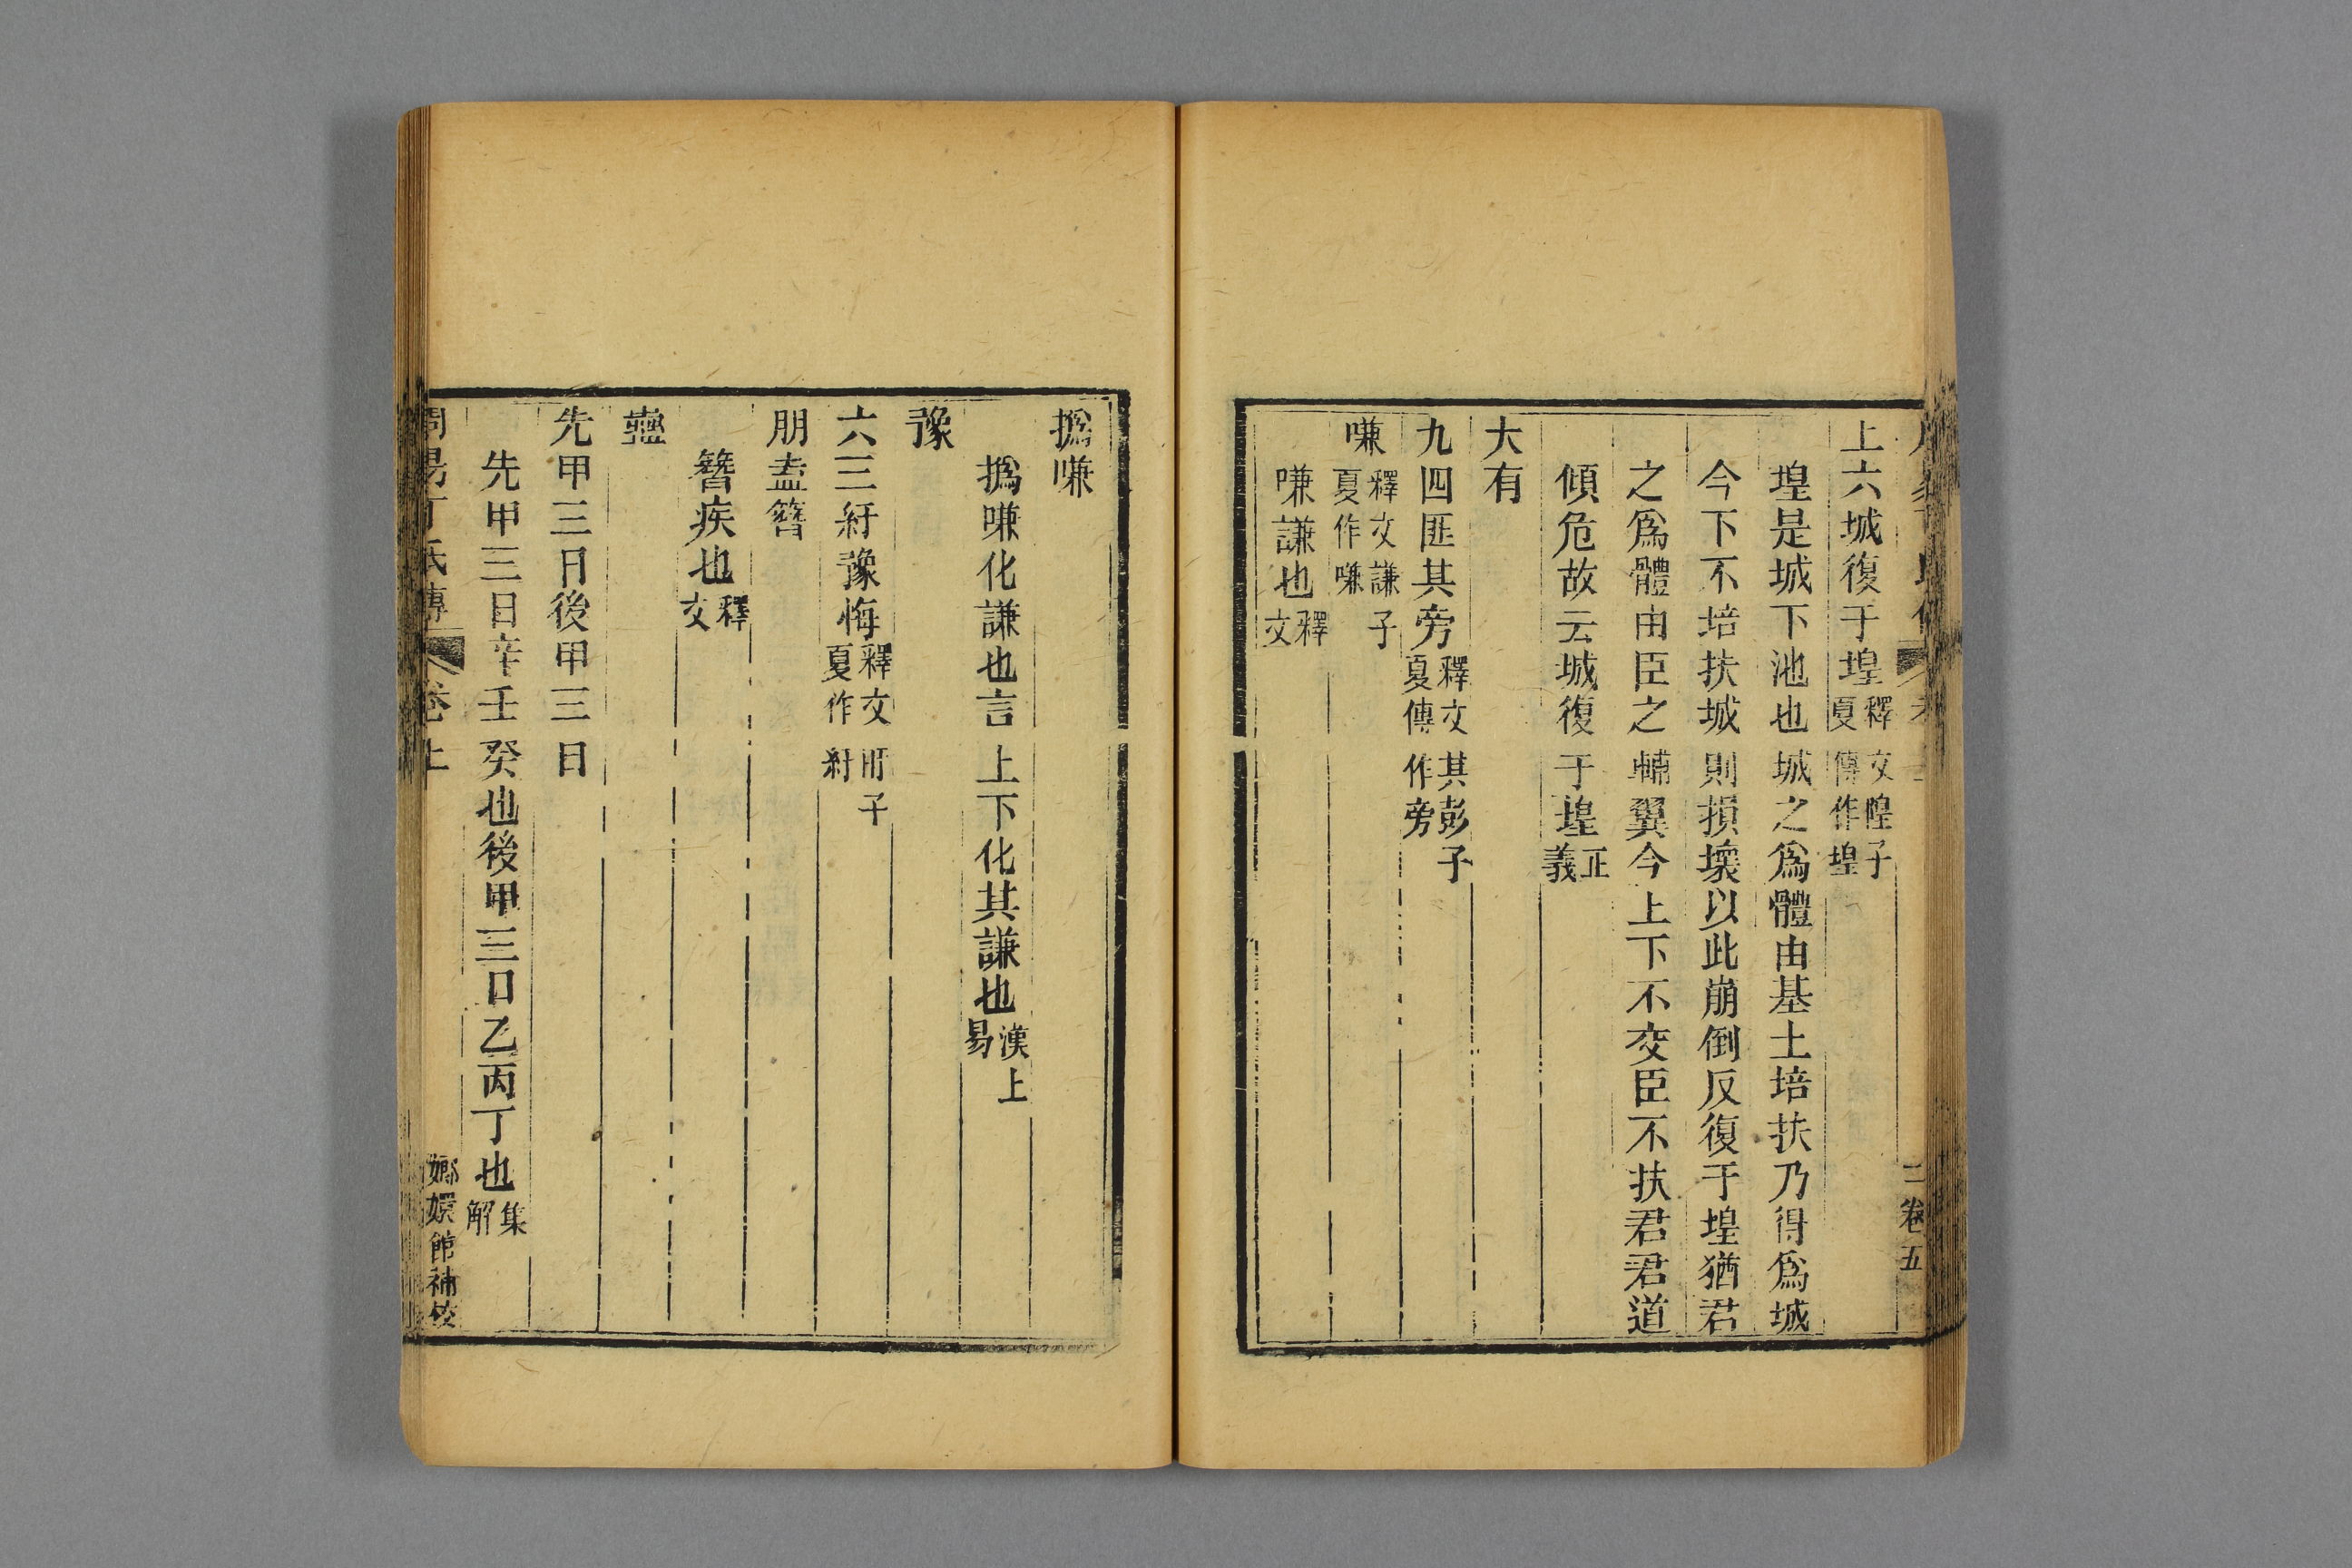 上六城復于堭釋文隍子夏傳作堭
堭是城下池也城之爲體由基土培扶乃得爲城
今下不培扶城則損壞以此崩倒反復于堭猶君
之爲體由臣之輔翼今上下不交臣不扶君君道
傾危故云城復于堭正義
大有
九四匪其旁釋文其彭子夏傳作旁
嗛釋文謙子夏作嗛
嗛謙也釋文
二卷五
撝嗛
撝嗛化謙也言上下化其謙也漢上易
豫
六三紆豫悔釋文盱子夏作紆
朋盍簪
簪疾也釋文
蠱
先甲三日後甲三日
先甲三日辛壬癸也後甲三日乙丙丁也集解
周易丁氏傳 卷上 嫏嬛館補校